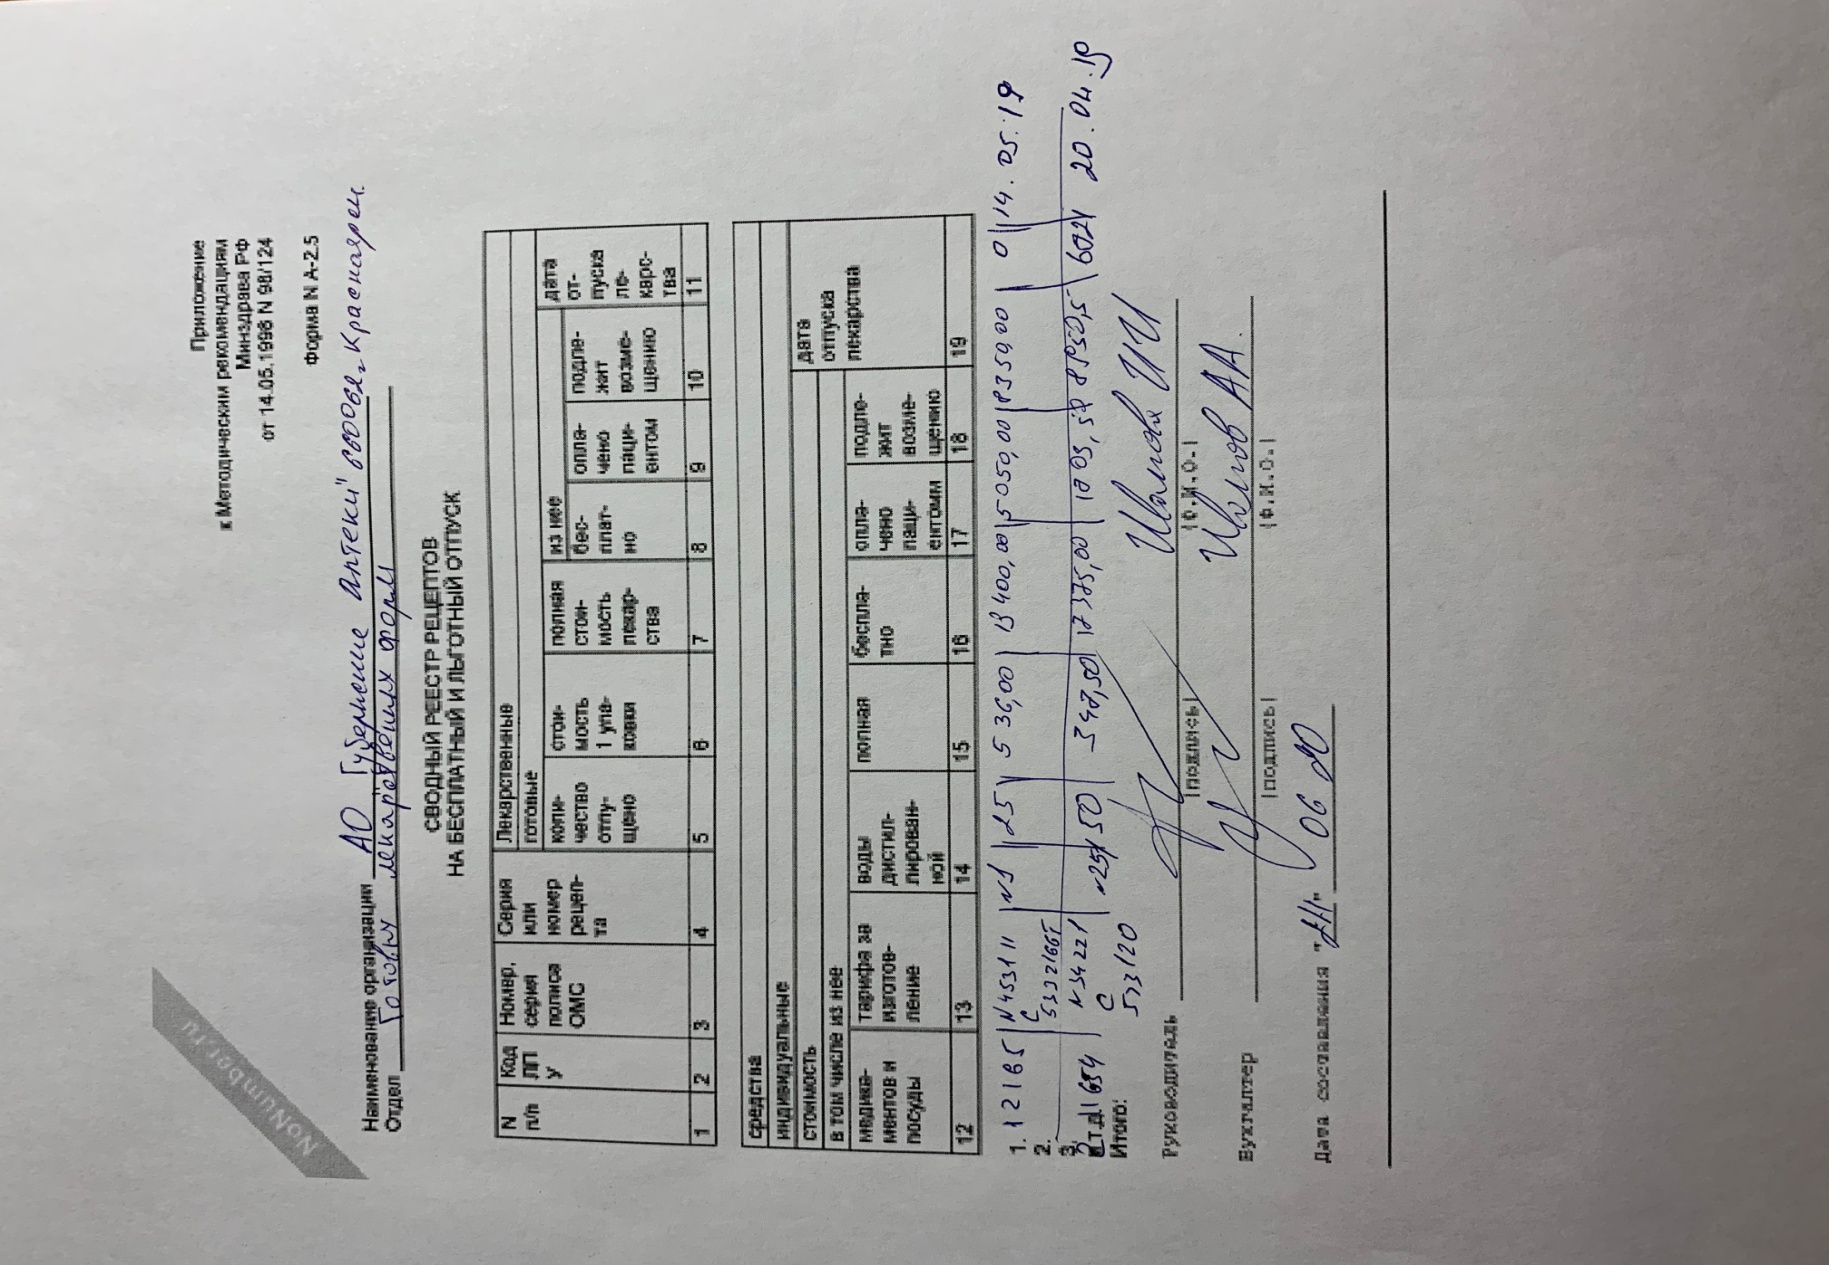 NoNumber.ru
Приложение
к Методическим рекомендациям
Минздрава РФ
от 14.05.1998 N 98/124
Форма N А-2.5
Наименование организации АО "Губернские Аптеки" 660062 г. Красноярск
Отдел Готовых лекарственных форм
СВОДНЫЙ РЕЕСТР РЕЦЕПТОВ
НА БЕСПЛАТНЫЙ И ЛЬГОТНЫЙ ОТПУСК
N п/п
Код ЛПУ
Номер, серия полиса ОМС
Серия или номер рецеп-та
Лекарственные
готовые
коли-чество отпу-щено
стои-мость 1 упа-ковки
полная стои-мость лекар-ства
из нее
бес-плат-но
опла-чено паци-ентом
подле-жит возме-щению
дата от-пуска ле-карс-тва
1 2 3 4 5 6 7 8 9 10 11
средства
индивидуальные
стоимость
в том числе из нее
медика-ментов и посуды
тарифа за изготов-ление
воды дистил-лирован-ной
полная
беспла-тно
опла-чено паци-ентомм
подле-жит возме-щению
дата отпуска лекарства
12 13 14 15 16 17 18 19
1. 12165 N453111 N1 25 536,00 13400,00 5050,00 8350,00 0 14.05.19
2. С
3.
И т.д. 1654 N34221 N25 50 347,50 17375,00 8850,5 20.04.19
Итого: С 533120
Руководитель Иванова И И
|подпись| |Ф.И.О.|
Бухгалтер А А.
|подпись| |Ф.И.О.|
Дата составления "11" 06 20